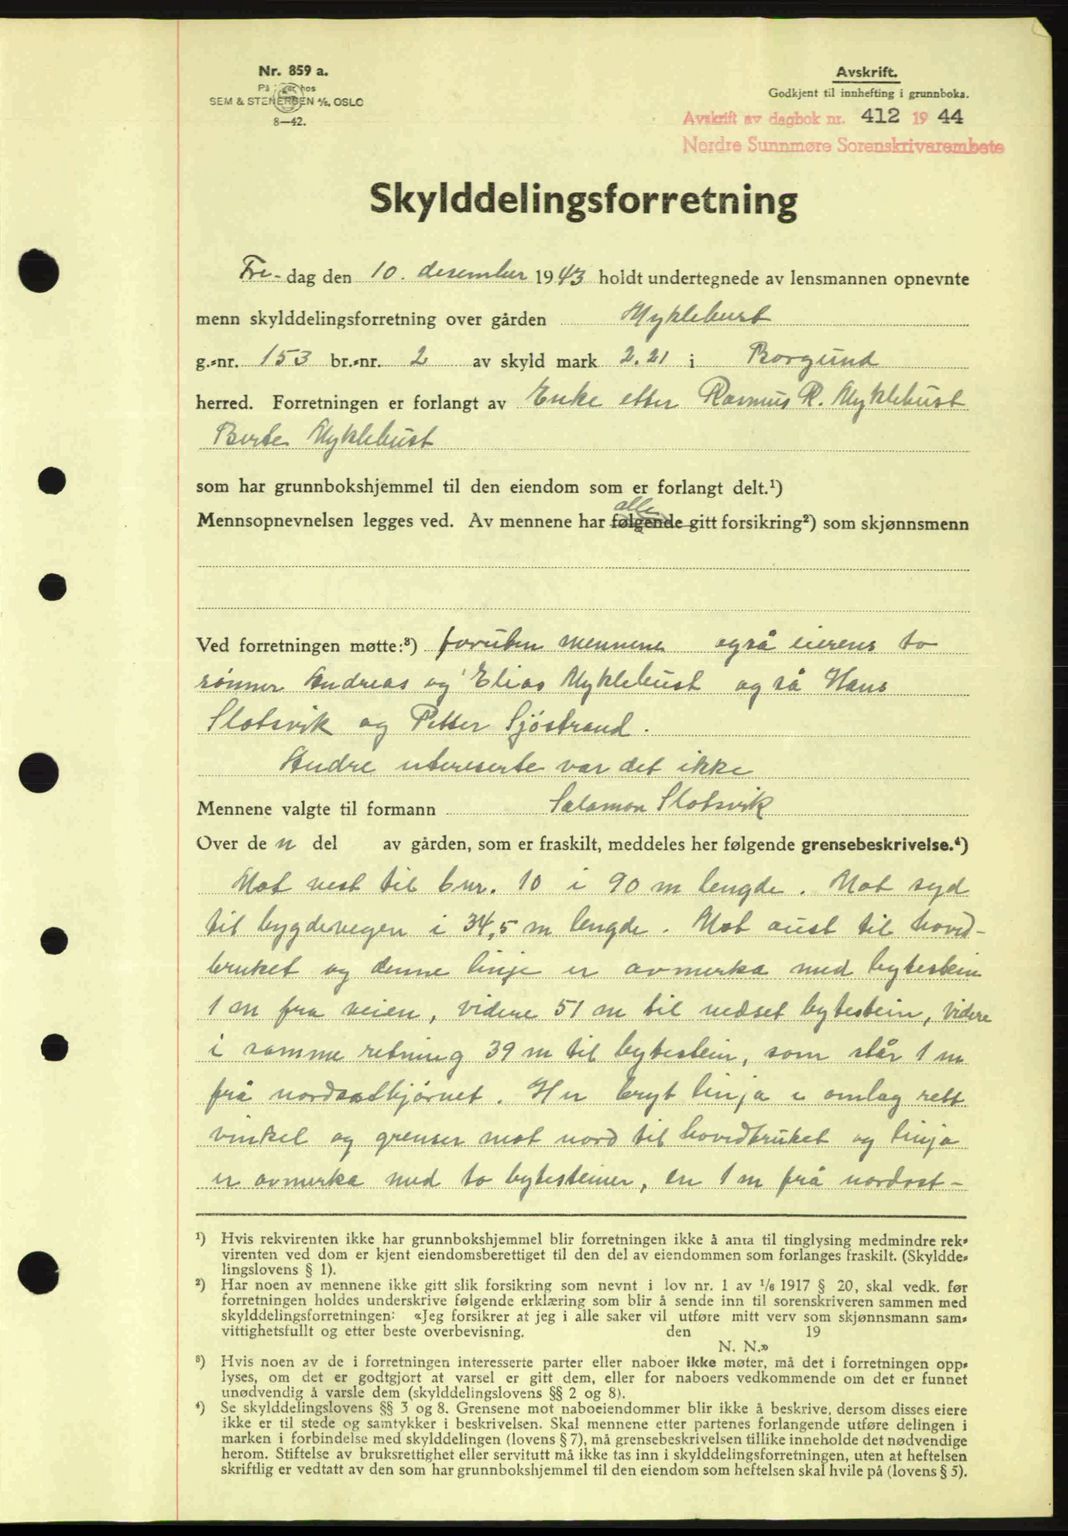 Nr. 859 a.
På lager hos
SEM & STENERSEN A/S, OSLO
8—42.
Avskrift.
Godkjent til innhefting i grunnboka.
Avskrift av dagbok nr. 412 1944
Nordre Sunnmøre Sorenskrivarembete
Skylddelingsforretning
Fre- dag den 10. desember 1943 holdt undertegnede av lensmannen opnevnte
menn skylddelingsforretning over gården Myklebust
g.-nr. 153 br.-nr. 2 av skyld mark 2.21 i Borgund
herred. Forretningen er forlangt av Enke etter Rasmus R. Myklebust
Berte Myklebust
som har grunnbokshjemmel til den eiendom som er forlangt delt.¹)
alle
Mennsopnevnelsen legges ved. Av mennene har følgende gitt forsikring²) som skjønnsmenn
Ved forretningen møtte:³) foruten mennene også eierens to
sønner Andreas og Elias Myklebust og så Hans
Slotsvik og Petter Sjöstrand.
Andre interesserte var det ikke
Mennene valgte til formann Salamon Slotsvik
Over de n del av gården, som er fraskilt, meddeles her følgende grensebeskrivelse.⁴)
Mot vest til bnr. 10 i 90 m lengde. Mot syd
til bygdevegen i 34,5 m lengde. Mot aust til hovid-
bruket og denne linje er avmerka med bytestein
1 m fra veien, videre 51 m til nedset bytestein, videre
i samme retning 39 m til bytestein, som står 1 m
frå nordosthjørnet. Her bryt linja i omlag rett
vinkel og grenser mot nord til hovedbruket og linja
er avmerka med to bytesteiner, en 1 m frå nordost-
¹) Hvis rekvirenten ikke har grunnbokshjemmel blir forretningen ikke å anta til tinglysing medmindre rek-
virenten ved dom er kjent eiendomsberettiget til den del av eiendommen som forlanges fraskilt. (Skyldde-
lingslovens § 1).
²) Har noen av mennene ikke gitt slik forsikring som nevnt i lov nr. 1 av 1/6 1917 § 20, skal vedk. før
forretningen holdes underskrive følgende erklæring som blir å sende inn til sorenskriveren sammen med
skylddelingsforretningen: «Jeg forsikrer at jeg i alle saker vil utføre mitt verv som skjønnsmann sam-
vittighetsfullt og etter beste overbevisning. den 19
N. N.»
³) Hvis noen av de i forretningen interesserte parter eller naboer ikke møter, må det i forretningen opp-
lyses, om det er godtgjort at varsel er gitt dem, eller for naboers vedkommende om det er funnet
unødvendig å varsle dem (skylddelingslovens §§ 2 og 8).
⁴) Se skylddelingslovens §§ 3 og 8. Grensene mot naboeiendommer blir ikke å beskrive, dersom disses eiere
ikke er til stede og samtykker i beskrivelsen. Skal mennene etter partenes forlangende utføre delingen i
marken i forbindelse med skylddelingen (lovens § 7), må grensebeskrivelsen tillike inneholde det nødvendige
herom. Stiftelse av bruksrettighet eller servitutt må ikke tas inn i skylddelingsforretningen, uten at heftelsen
skriftlig er vedtatt av den som har grunnbokshjemmel til den eiendom som heftelsen skal hvile på (lovens § 5).